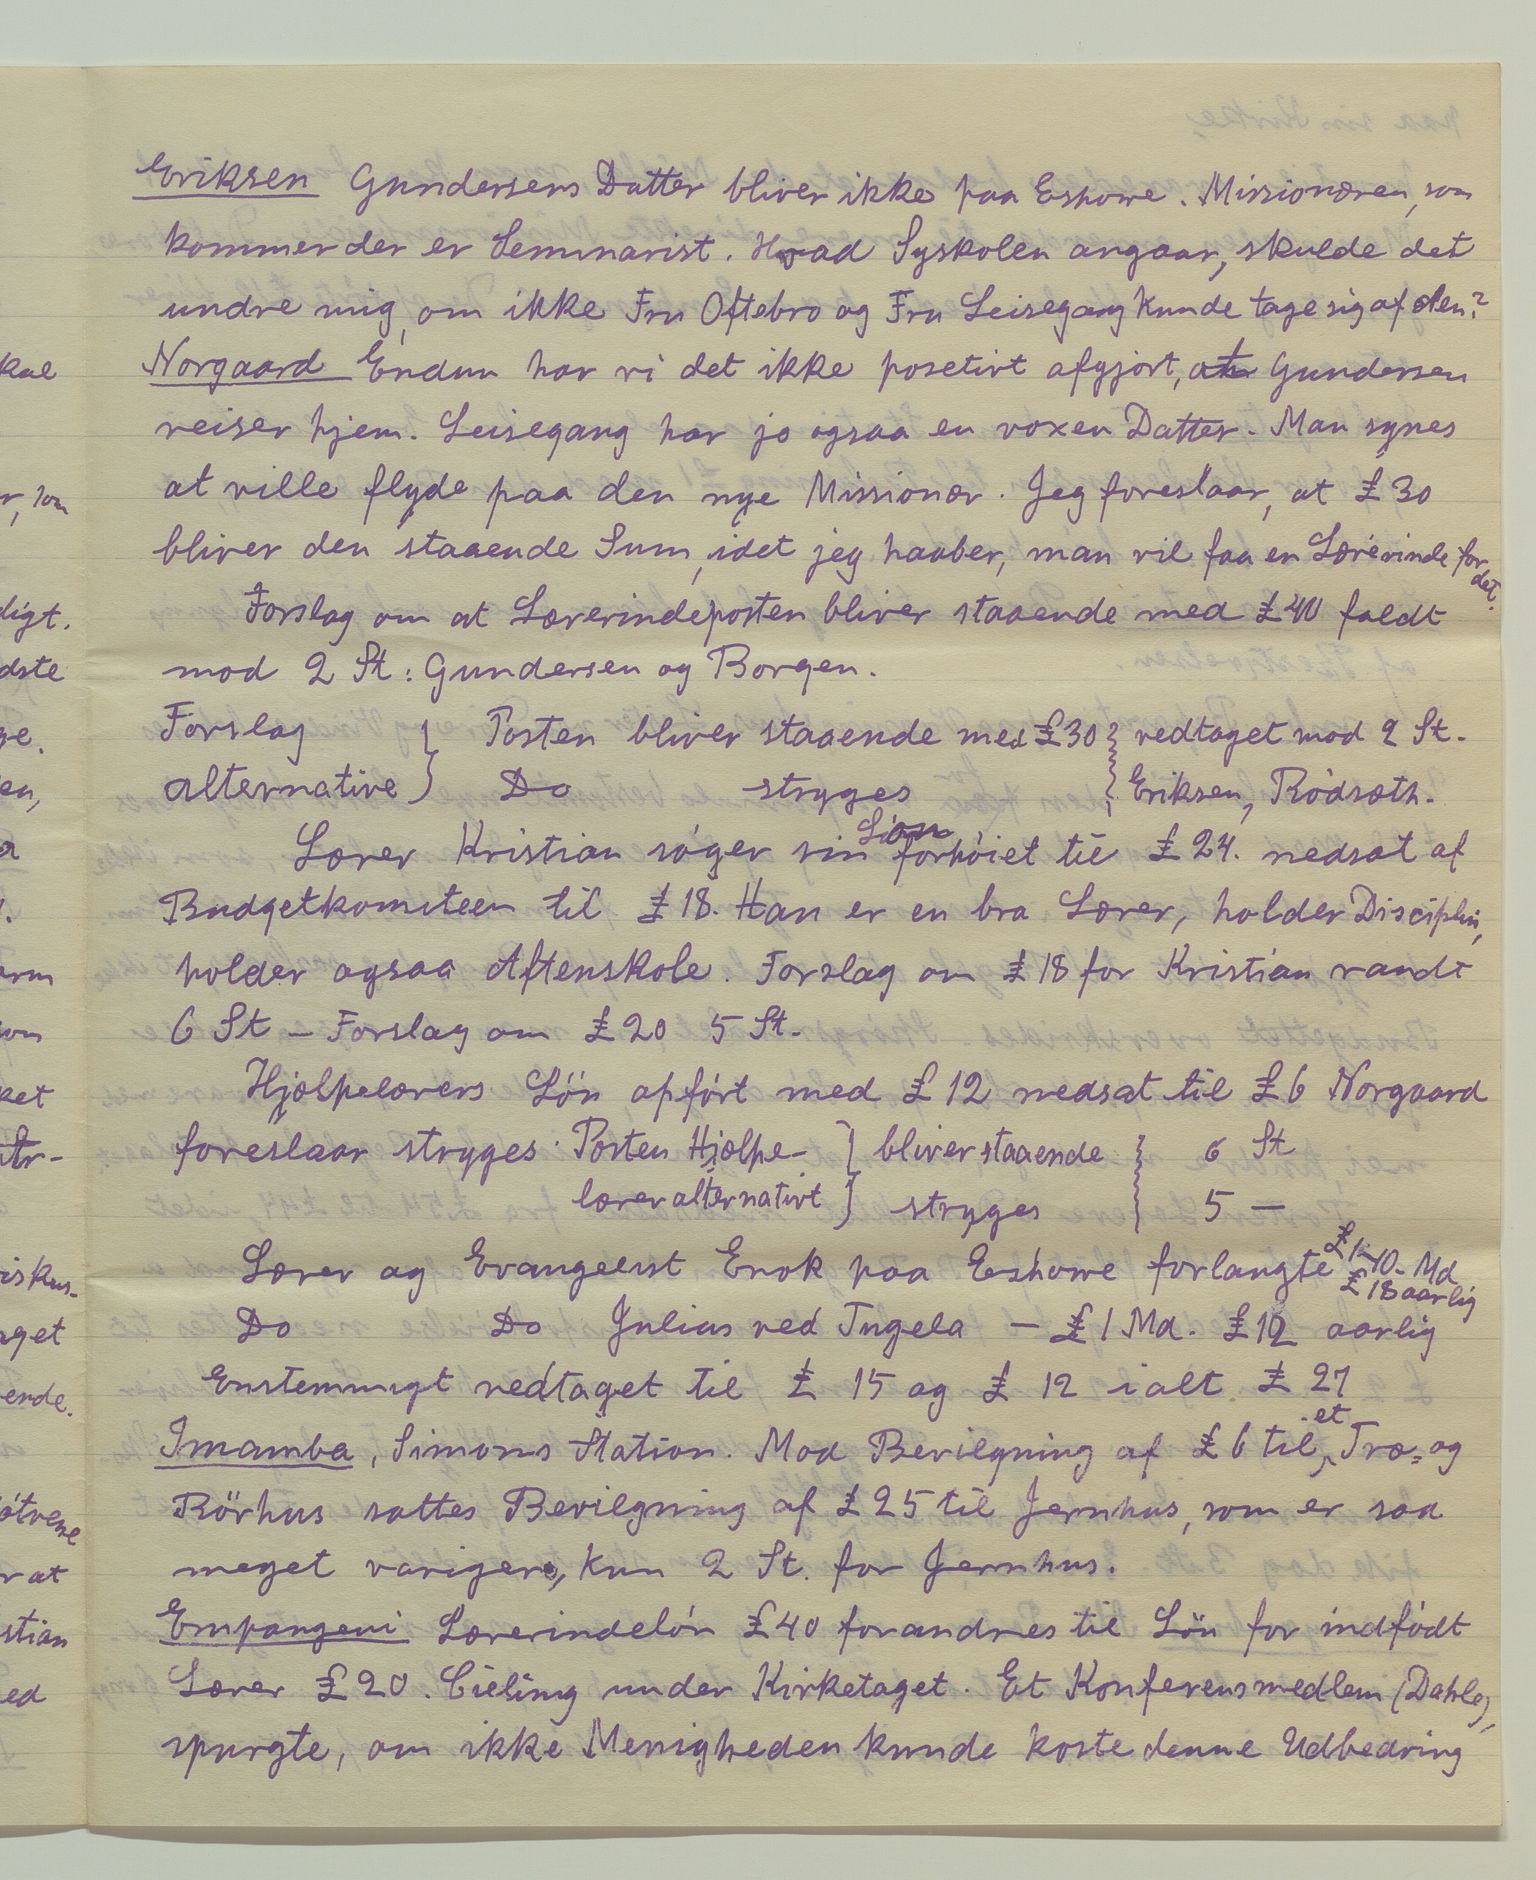 Eriksen Gundersens Datter bliver ikke paa Eshowe. Missionæren, som
kommer der er Seminarist. Hvad Syskolen angaar, skulde det
undre mig, om ikke Fru Oftebro og Fru Leisegang kunde tage sig af den?
Norgaard Endnu har vi det ikke posetivt afgjort, at Gundersen
reiser hjem. Leisegang har jo ogsaa en voxen Datter. Man synes
at ville flyde paa den nye Missionær. Jeg foreslaar, at £ 30
bliver den staaende Sum, idet jeg haaber, man vil faa en Lærerinde for det.
Forslag om at Lærerindeposten bliver staaende med £ 40 faldt
mod 2 St: Gundersen og Borgen.
Forslag } Posten bliver staaende med £30 } vedtaget mod 2 St.
alternative } Do stryges } Eriksen, Rödsæth.
Lærer Kristian söger sin Lön forhöiet til £ 24. nedsat af
Budgetkomiteen til £ 18. Han er en bra Lærer, holder Disciplin,
holder ogsaa Aftenskole. Forslag om £ 18 for Kristian vandt
6 St – Forslag om £ 20 5 St.
Hjælpelærers Lön opfört med £ 12 nedsat til £ 6 Norgaard
foreslaar stryges. Posten Hjælpe- } bliver staaende } 6 St
lærer alternativt } stryges } 5 –
Lærer og Evangelist Enok paa Eshowe forlangte £ 1-10- Md
£ 18 aarlig
Do Do Julius ved Tugela – £ 1 Md. £ 12 aarlig
Enstemmigt vedtaget til £ 15 og £ 12 ialt £ 27
Imamba, Simons Station. Mod Bevilgning af £ 6 til et Træ= og
Rörhus sattes Bevilgning af £ 25 til Jernhus, som er saa
meget varigere, kun 2 St. for Jernhus.
Empangeni Lærerindelön £ 40 forandres til Lön for indfödt
Lærer £ 20. Cieling under Kirketaget. Et Konferensmedlem (Dahle),
spurgte, om ikke Menigheden kunde koste denne Udbedring